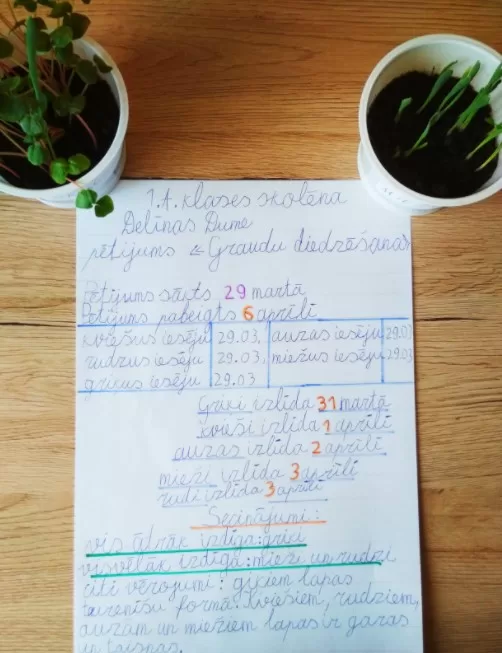 1.A. klases skolēna
Delīnas Dume
pētījums "Graudu diedzēšana"
Pētījums sākts 29 martā
Pētījums pabeigts 6 aprīlī
kviešus iesēju 29.03. auzas iesēju 29.03
rudzus iesēju 29.03. miežus iesēju 29.03
griķus iesēju 29.03
Griķi izlīda 31 martā
kvieši izlīda 1 aprīlī
auzas izlīda 2 aprīlī
mieži izlīda 3 aprīlī
rudzi izlīda 3 aprīlī
Secinājumi:
vis ātrāk izdīga: griķi
visvēlāk izdīga: mieži un rudzi
citi vērojumi: griķiem lapas
taureņīšu formā. Kviešiem, rudziem,
auzām un miežiem lapas ir garas
un taisnas.